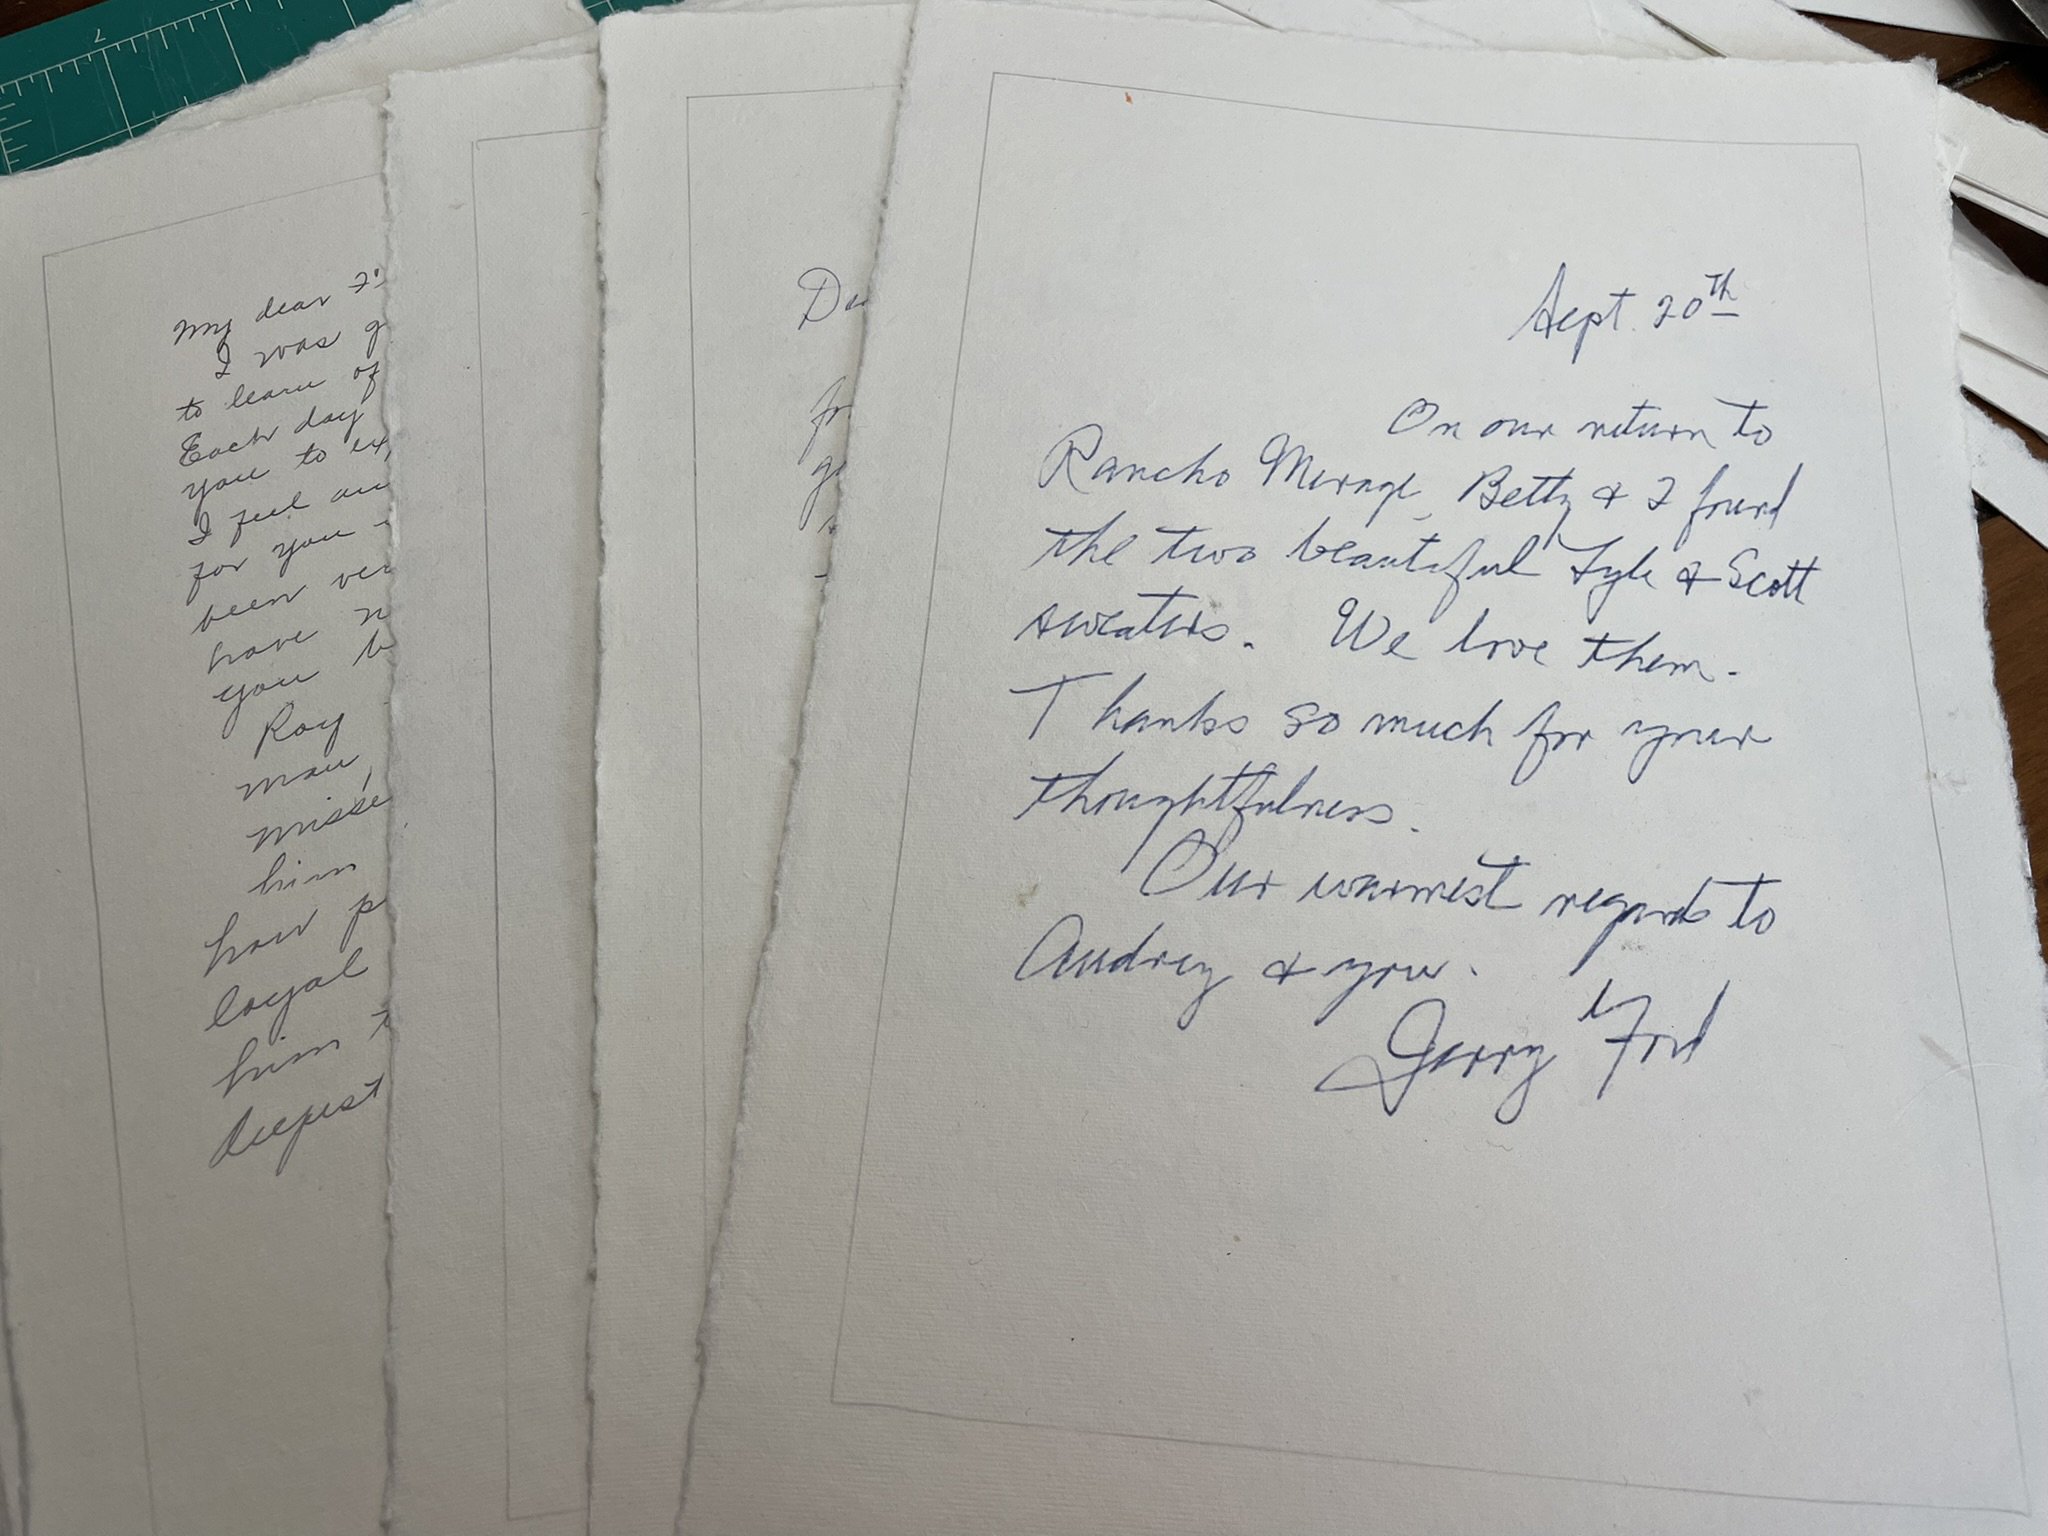 My dear
I was
to learn of
Each day
you to
I feel
for you
been
have
you
Roy
man,
misse
him
how p
loyal
him
deepest
7
Sept. 20th
On our return to
Rancho Mirage, Betty & I found
the two beautiful Lyle & Scott
sweaters. We love them.
Thanks so much for your
thoughtfulness.
Our warmest regards to
Audrey & you.
Jerry Ford